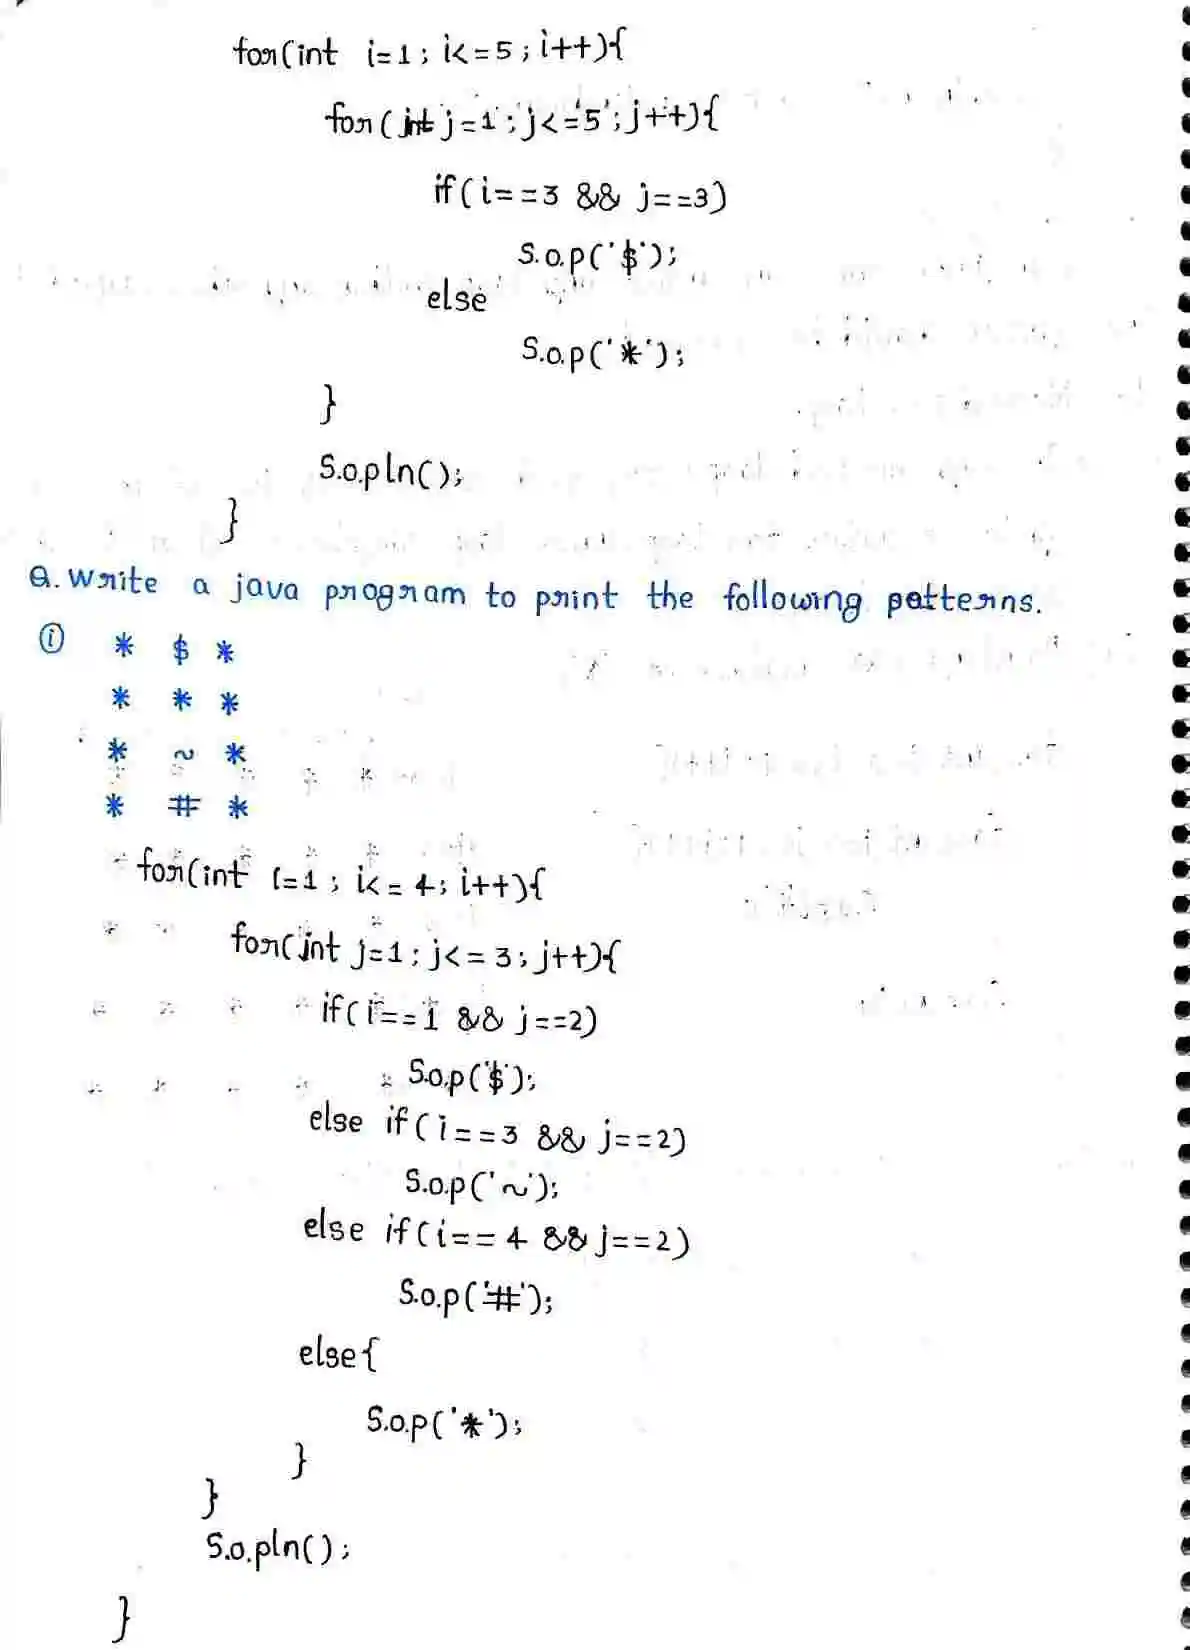 for(int i=1; i<=5; i++){
for(int j=1; j<=5; j++){
if(i==3 && j==3)
S.o.p('$');
else
S.o.p('*');
}
S.o.pln();
}
Q. Write a java program to print the following patterns.
(i) * $ *
* * *
* ~ *
* # *
for(int i=1; i<=4; i++){
for(int j=1; j<=3; j++){
if(i==1 && j==2)
S.o.p('$');
else if(i==3 && j==2)
S.o.p('~');
else if(i==4 && j==2)
S.o.p('#');
else{
S.o.p('*');
}
}
S.o.pln();
}